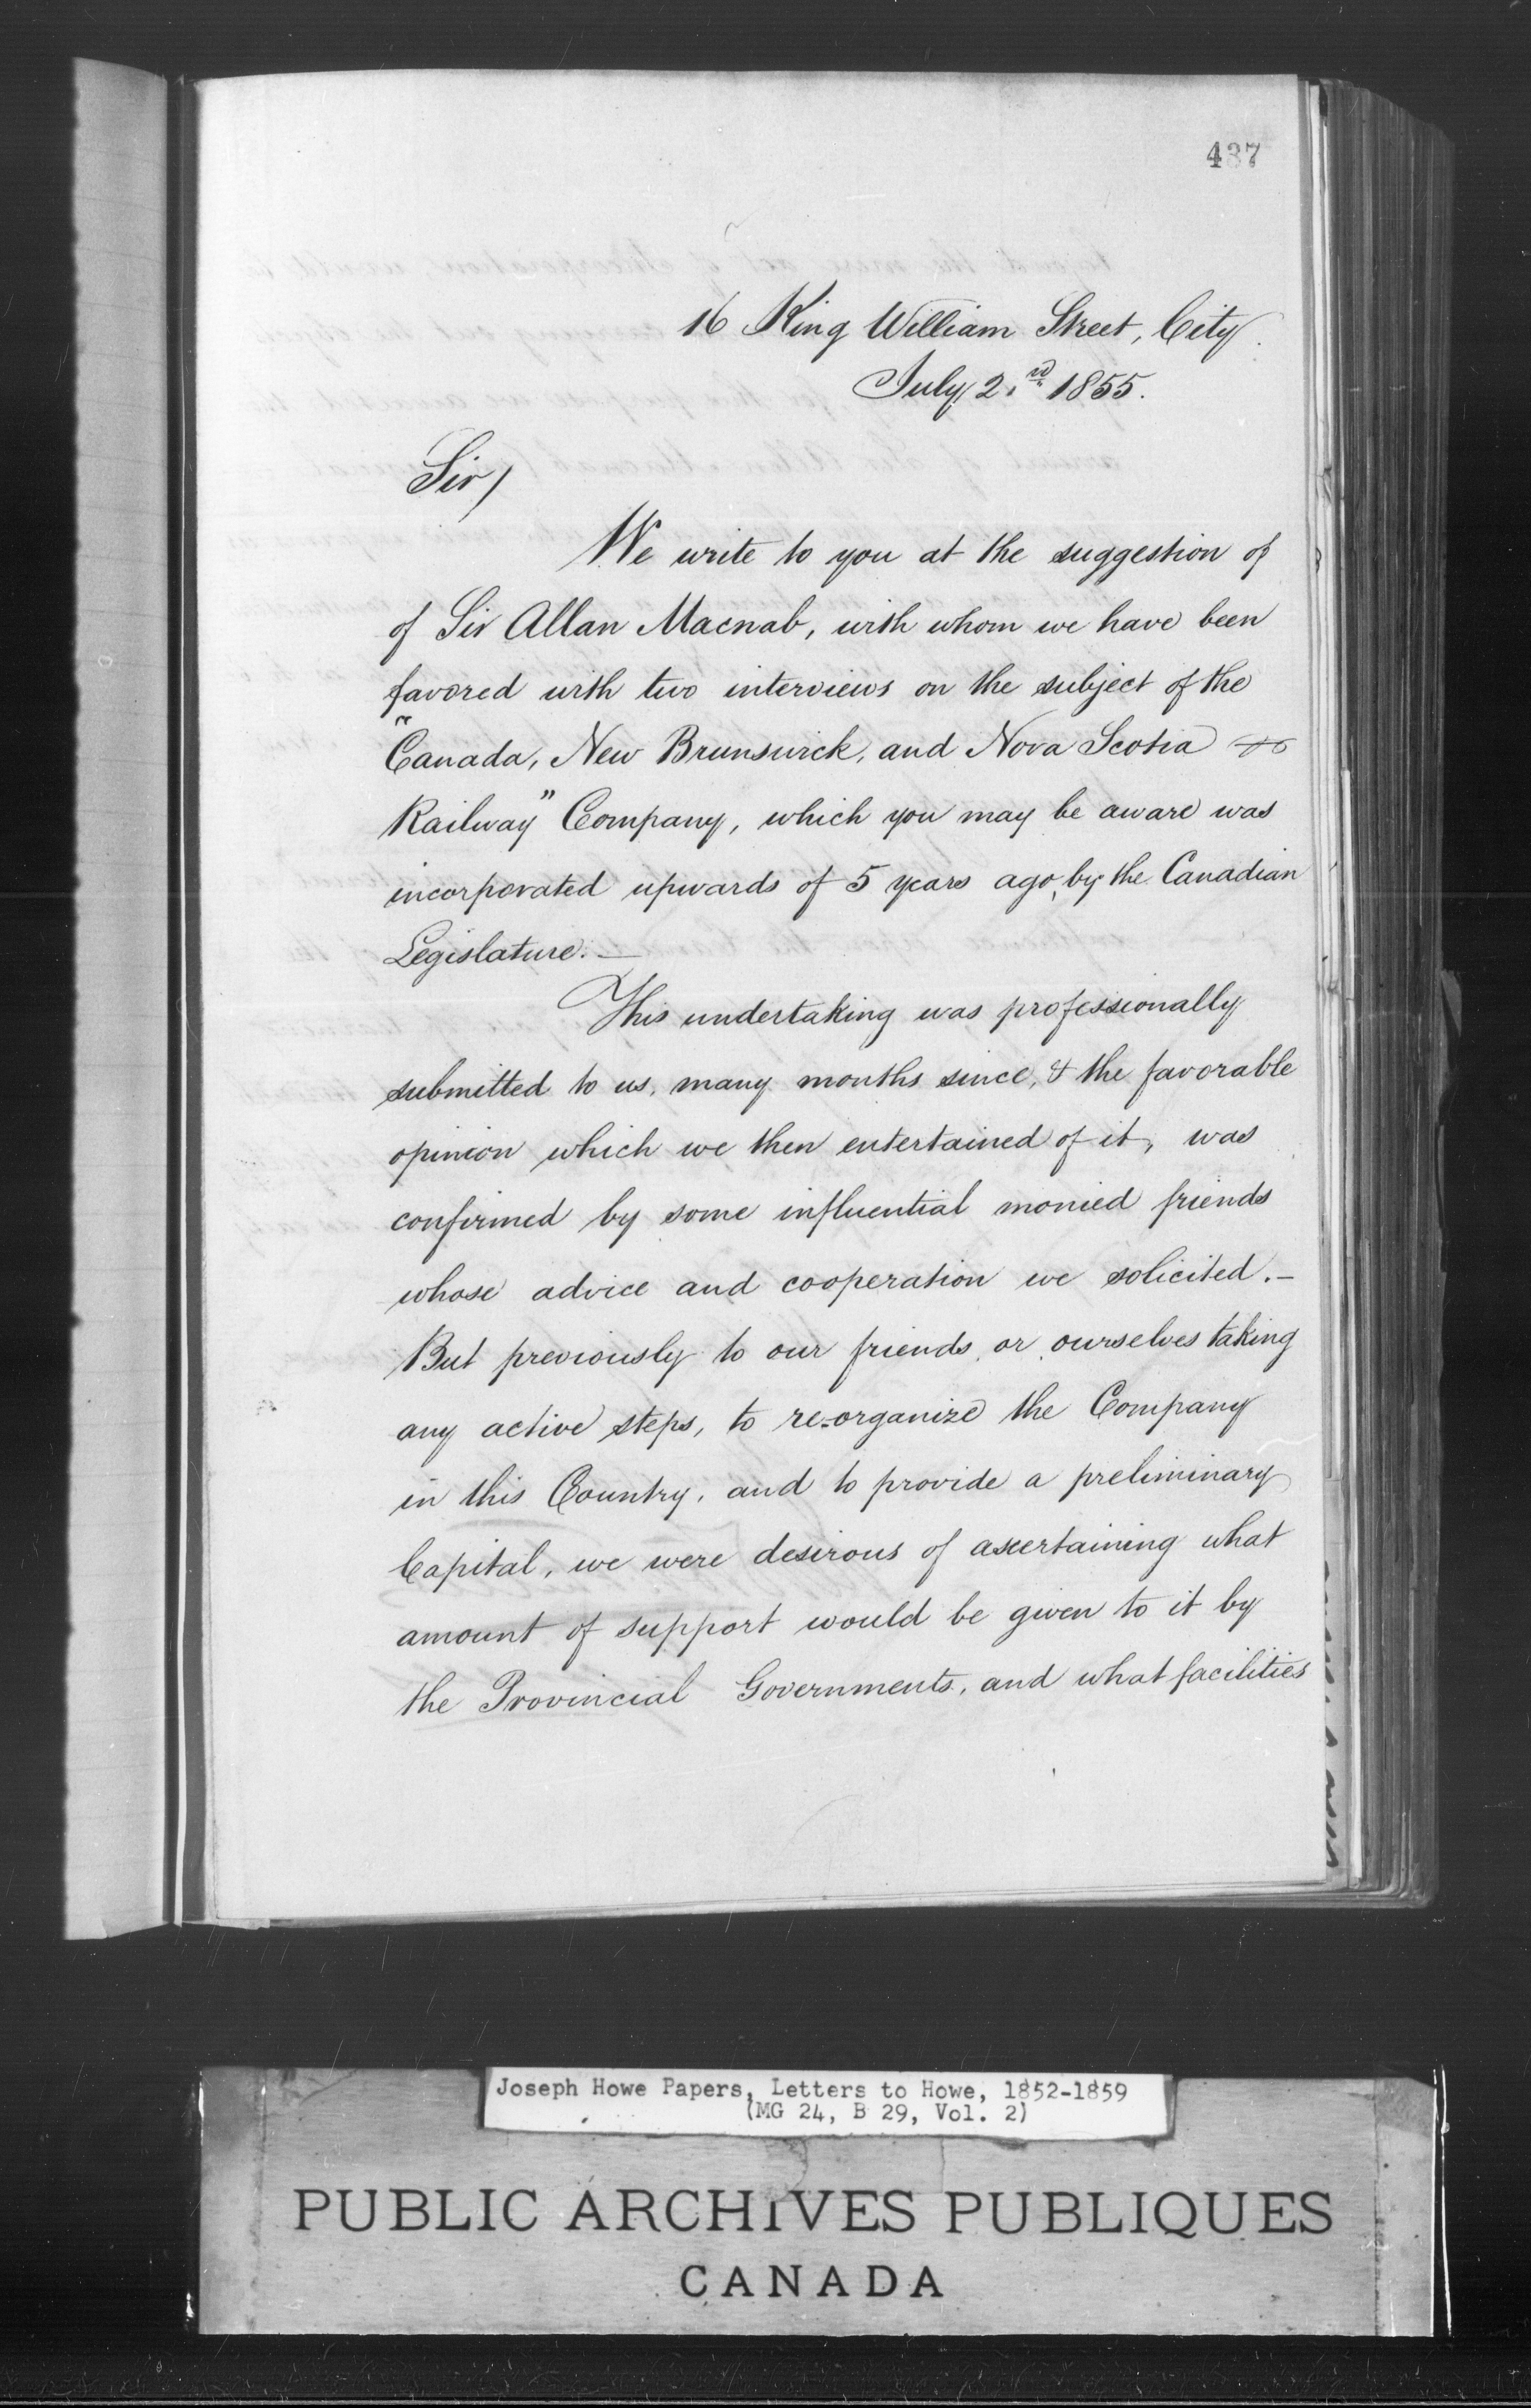 437
16 King William Street, City.
July 2.nd 1855.
Sir/
We write to you at the suggestion of
of Sir Allan Macnab, with whom we have been
favored with two interviews on the subject of the
"Canada, New Brunswick, and Nova Scotia
Railway" Company, which you may be aware was
incorporated upwards of 5 years ago, by the Canadian
Legislature. —
This undertaking was professionally
submitted to us, many months since, & the favorable
opinion which we then entertained of it, was
confirmed by some influential monied friends
whose advice and cooperation we solicited. —
But previously to our friends, or ourselves taking
any active steps, to re-organize the Company
in this Country, and to provide a preliminary
Capital, we were desirous of ascertaining what
amount of support would be given to it by
the Provincial Governments, and what facilities
Joseph Howe Papers, Letters to Howe, 1852-1859
(MG 24, B 29, Vol. 2)
PUBLIC ARCHIVES PUBLIQUES
CANADA